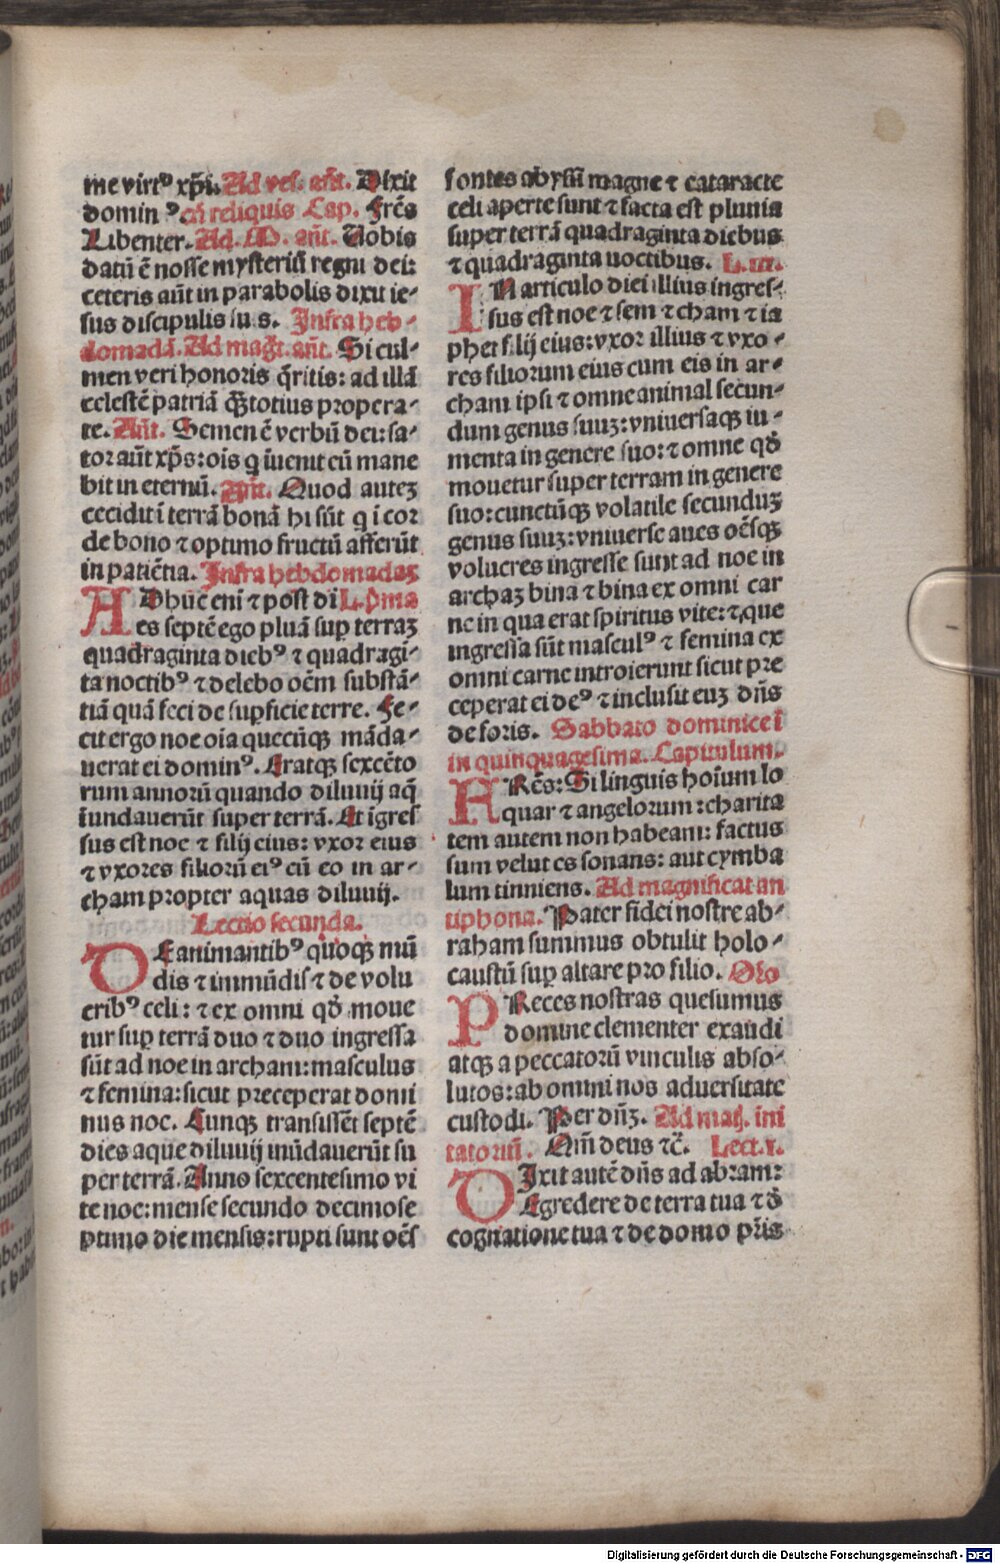 me virtꝰ xp̄i. Ad ves. añt. Dixit
dominꝰ cū reliquis Cap. Frēs
Libenter. Ad. M. añt. Uobis
datū ē nosse mysteriū regni dei:
ceteris aūt in parabolis dixit ie-
sus discipulis suis. Infra heb-
domadā. Ad mag̃t. añt. Si cul-
men veri honoris q̄ritis: ad illā
celestē patriā q̄ȝtotius propera-
te. Añt. Semen ē verbū dei: sa-
tor aūt xp̄s: ois q īuenit eū mane
bit in eternū. Añt. Quod auteȝ
cecidit ī terrā bonā hi sūt q ī cor
de bono ⁊ optimo fructū afferūt
in patiētia. Infra hebdomadaȝ
ADhuc eni ⁊ post di L. p̄ma
es septē ego pluā suꝑ terraȝ
quadraginta diebꝰ ⁊ quadragi-
ta noctibꝰ ⁊ delebo oēm substā-
tiā quā feci de suꝑficie terre. Fe-
cit ergo noe oia quecūqȝ māda-
uerat ei dominꝰ. Eratqȝ sexcēto
rum annorū quando diluuij aq̄
īundauerūt super terrā. Et īgres
sus est noe ⁊ filij eius: vxor eius
⁊ vxores filiorū eiꝰ cū eo in ar-
cham propter aquas diluuij.
Lectio secunda.
DE animantibꝰ quoqȝ mū
dis ⁊ immūdis ⁊ de volu
cribꝰ celi: ⁊ ex omni qđ moue
tur suꝑ terrā duo ⁊ duo ingressa
sūt ad noe in archam: masculus
⁊ femina: sicut preceperat domi
nus noe. Cunqȝ transissēt septē
dies aque diluuij inūdauerūt su
per terrā. Anno sexcentesimo vi
te noe: mense secundo decimose
ptimo die mensis: rupti sunt oēs
fontes abyssi magne ⁊ cataracte
celi aperte sunt ⁊ facta est pluuia
super terrā quadraginta diebus
⁊ quadraginta noctibus. L. iii.
IN articulo diei illius ingres-
sus est noe ⁊ sem ⁊ cham ⁊ ia
phet filij eius: vxor illius ⁊ vxo-
res filiorum eius cum eis in ar-
cham ipsi ⁊ omne animal secun-
dum genus suuȝ: vniuersaqȝ iu-
menta in genere suo: ⁊ omne qđ
mouetur super terram in genere
suo: cunctūqȝ volatile secunduȝ
genus suuȝ: vniuerse aues oēsqȝ
volucres ingresse sunt ad noe in
archaȝ bina ⁊ bina ex omni car
ne in qua erat spiritus vite: ⁊ que
ingressa sūt masculꝰ ⁊ femina ex
omni carne introierunt sicut pre
ceperat ei deꝰ ⁊ inclusit euȝ dn̄s
de foris. Sabbato dominice ī
in quinquagesima. Capitulum.
FRēs: Si linguis hoīum lo
quar ⁊ angelorum: charita
tem autem non habeam: factus
sum velut es sonans: aut cymba
lum tinniens. Ad magnificat an
tiphona. Pater fidei nostre ab-
raham summus obtulit holo-
caustū suꝑ altare pro filio. Oro
PReces nostras quesumus
domine clementer exaudi
atqȝ a peccatorū vinculis abso-
lutos: ab omni nos aduersitate
custodi. Per dn̄ȝ. Ad mat̃. inui
tatoriū. Qm̄ deus ⁊c̄. Lect. i.
DIxit autē dn̄s ad abram:
Egredere de terra tua ⁊ đ
cognatione tua ⁊ de domo pr̄is
Digitalisierung gefördert durch die Deutsche Forschungsgemeinschaft - DFG